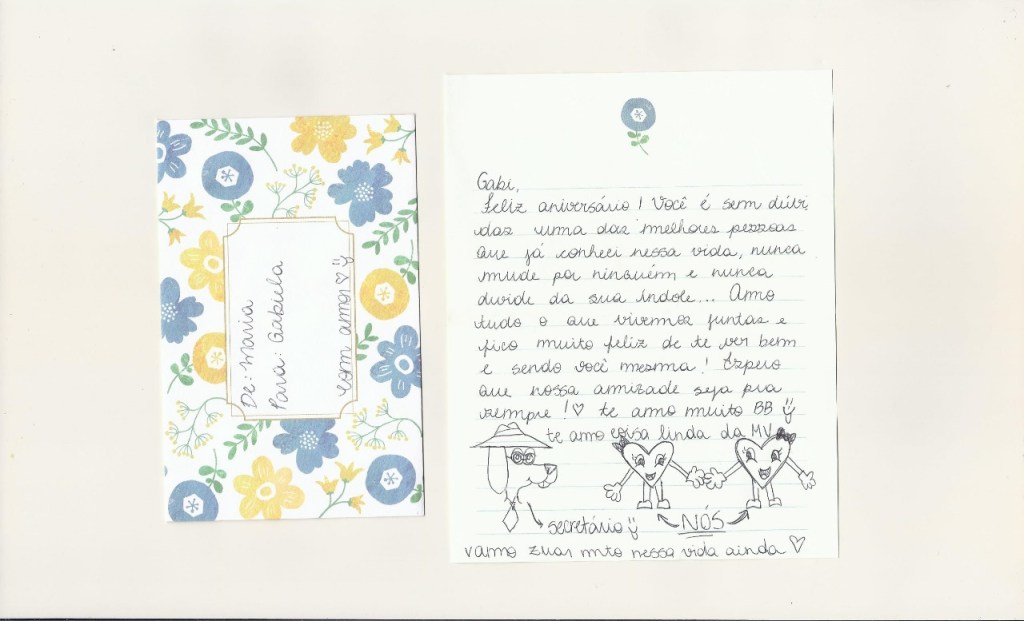 De: Maria
Para: Gabiula
com amor ♡ ü
Gabi,
Feliz aniversário! Você é sem dúvi
das uma das melhores pessoas
que já conheci nessa vida, nunca
mude por ninguém e nunca
duvide da sua índole... Amo
tudo o que vivemos juntas e
fico muito feliz de te ver bem
e sendo você mesma! Espero
que nossa amizade seja pra
sempre!♡ te amo muito BB ü
te amo coisa linda da MV
secretário ü
NÓS
vamo zuar mto nessa vida ainda ♡